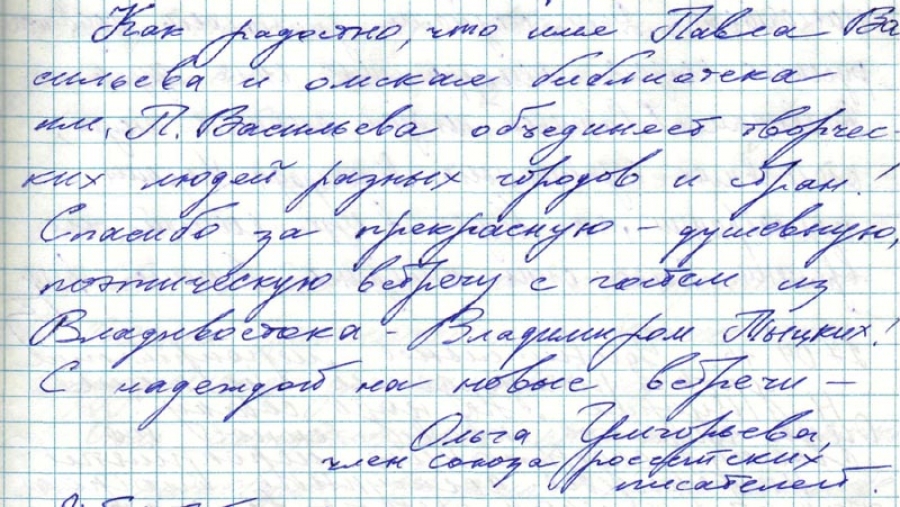 Как радостно, что имя Павла Ва
сильева и омская библиотека
им. П. Васильева объединяет творчес-
ких людей разных городов и стран!
Спасибо за прекрасную - душевную,
поэтическую встречу с гостем из
Владивостока - Владимиром Тыцких!
С надеждой на новые встречи -
Ольга
член союза российских
писателей.